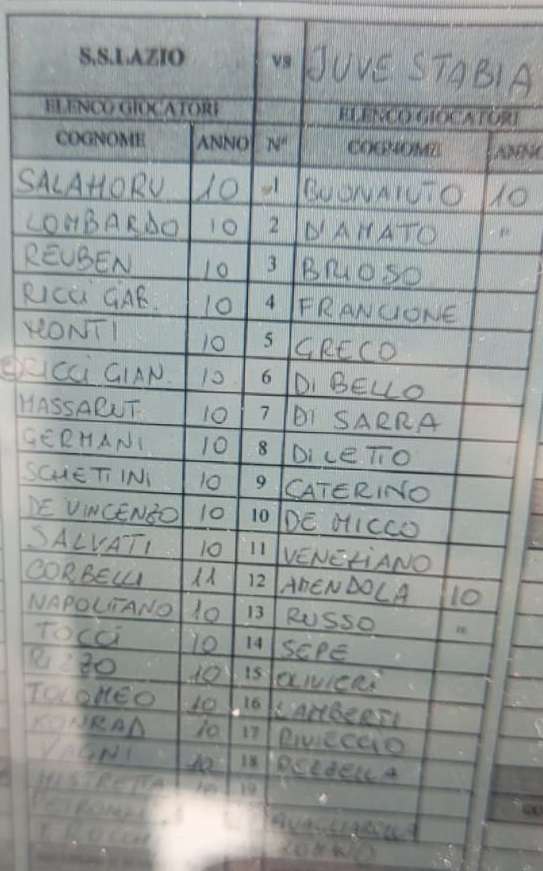 S.S.LAZIO vs JUVE STABIA
ELENCO GIOCATORI ELENCO GIOCATORI
COGNOME ANNO N° COGNOME ANNO
SALAMORU 10 1 BUONAIUTO 10
LOMBARDO 10 2 D'AMATO "
REUBEN 10 3 BRIOSO
RICCI GAB. 10 4 FRANCIONE
MONTI 10 5 GRECO
RICCI GIAN. 10 6 DI BELLO
MASSARUT. 10 7 DI SARRA
GERMANI 10 8 DILETTO
SCHETTINI 10 9 CATERINO
DE VINCENZO 10 10 DE MICCO
SALVATI 10 11 VENEZIANO
CORBELLI 11 12 AMENDOLA 10
NAPOLITANO 10 13 RUSSO "
TOCCI 10 14 SEPE
RIZZO 10 15 OLIVIERI
TOLOMEO 10 16 LAMBERTI
KONRAD 10 17 RIVIECCIO
VAGNI 18
MISTRETTA 10 19